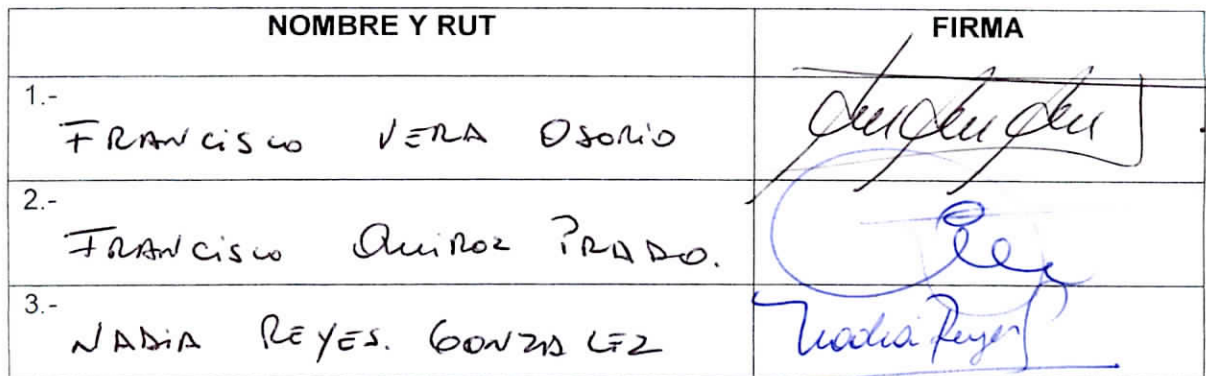 NOMBRE Y RUT FIRMA
1.-
FRANCISCO VERA OSORIO
2.-
FRANCISCO QUIROZ PRADO.
3.-
NADIA REYES. GONZALEZ Nadia Reyes